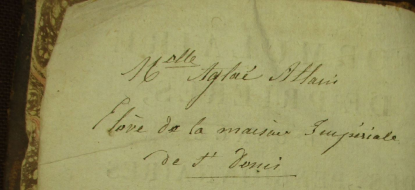 M.elle Aglaé Allais
Elève de la maison Impériale
de St Denis